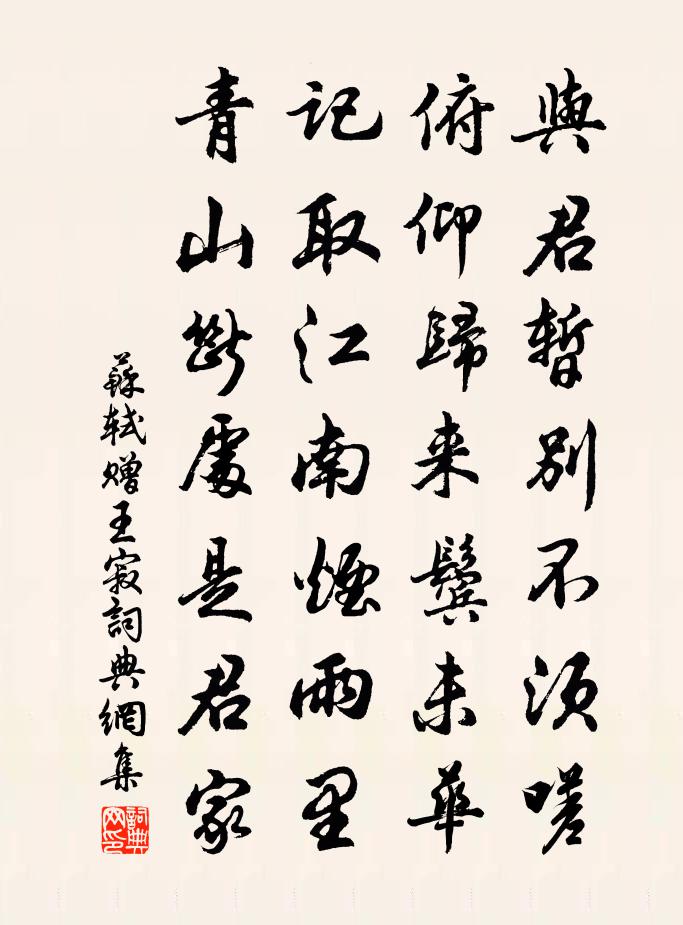 與君暫别不須嗟
俯仰歸来鬢未華
記取江南煙雨里
青山斷處是君家
蘇軾贈王寂詞典網集
詞典网印